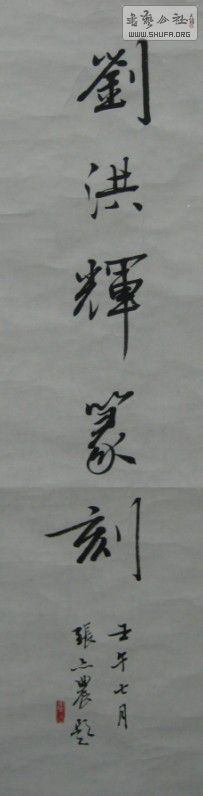 劉洪輝篆刻
壬午七月
張亦農題
書藝公社
WWW.SHUFA.ORG